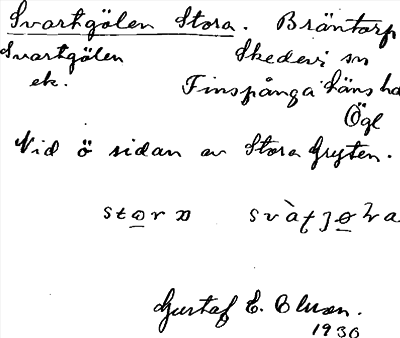 Svartgölen Stora. Bräntorp
Svartgölen Skedevi sn
ek. Finspånga läns hd
Ögl
Vid ö sidan av Stora Gryten.
Gustaf E.
1930